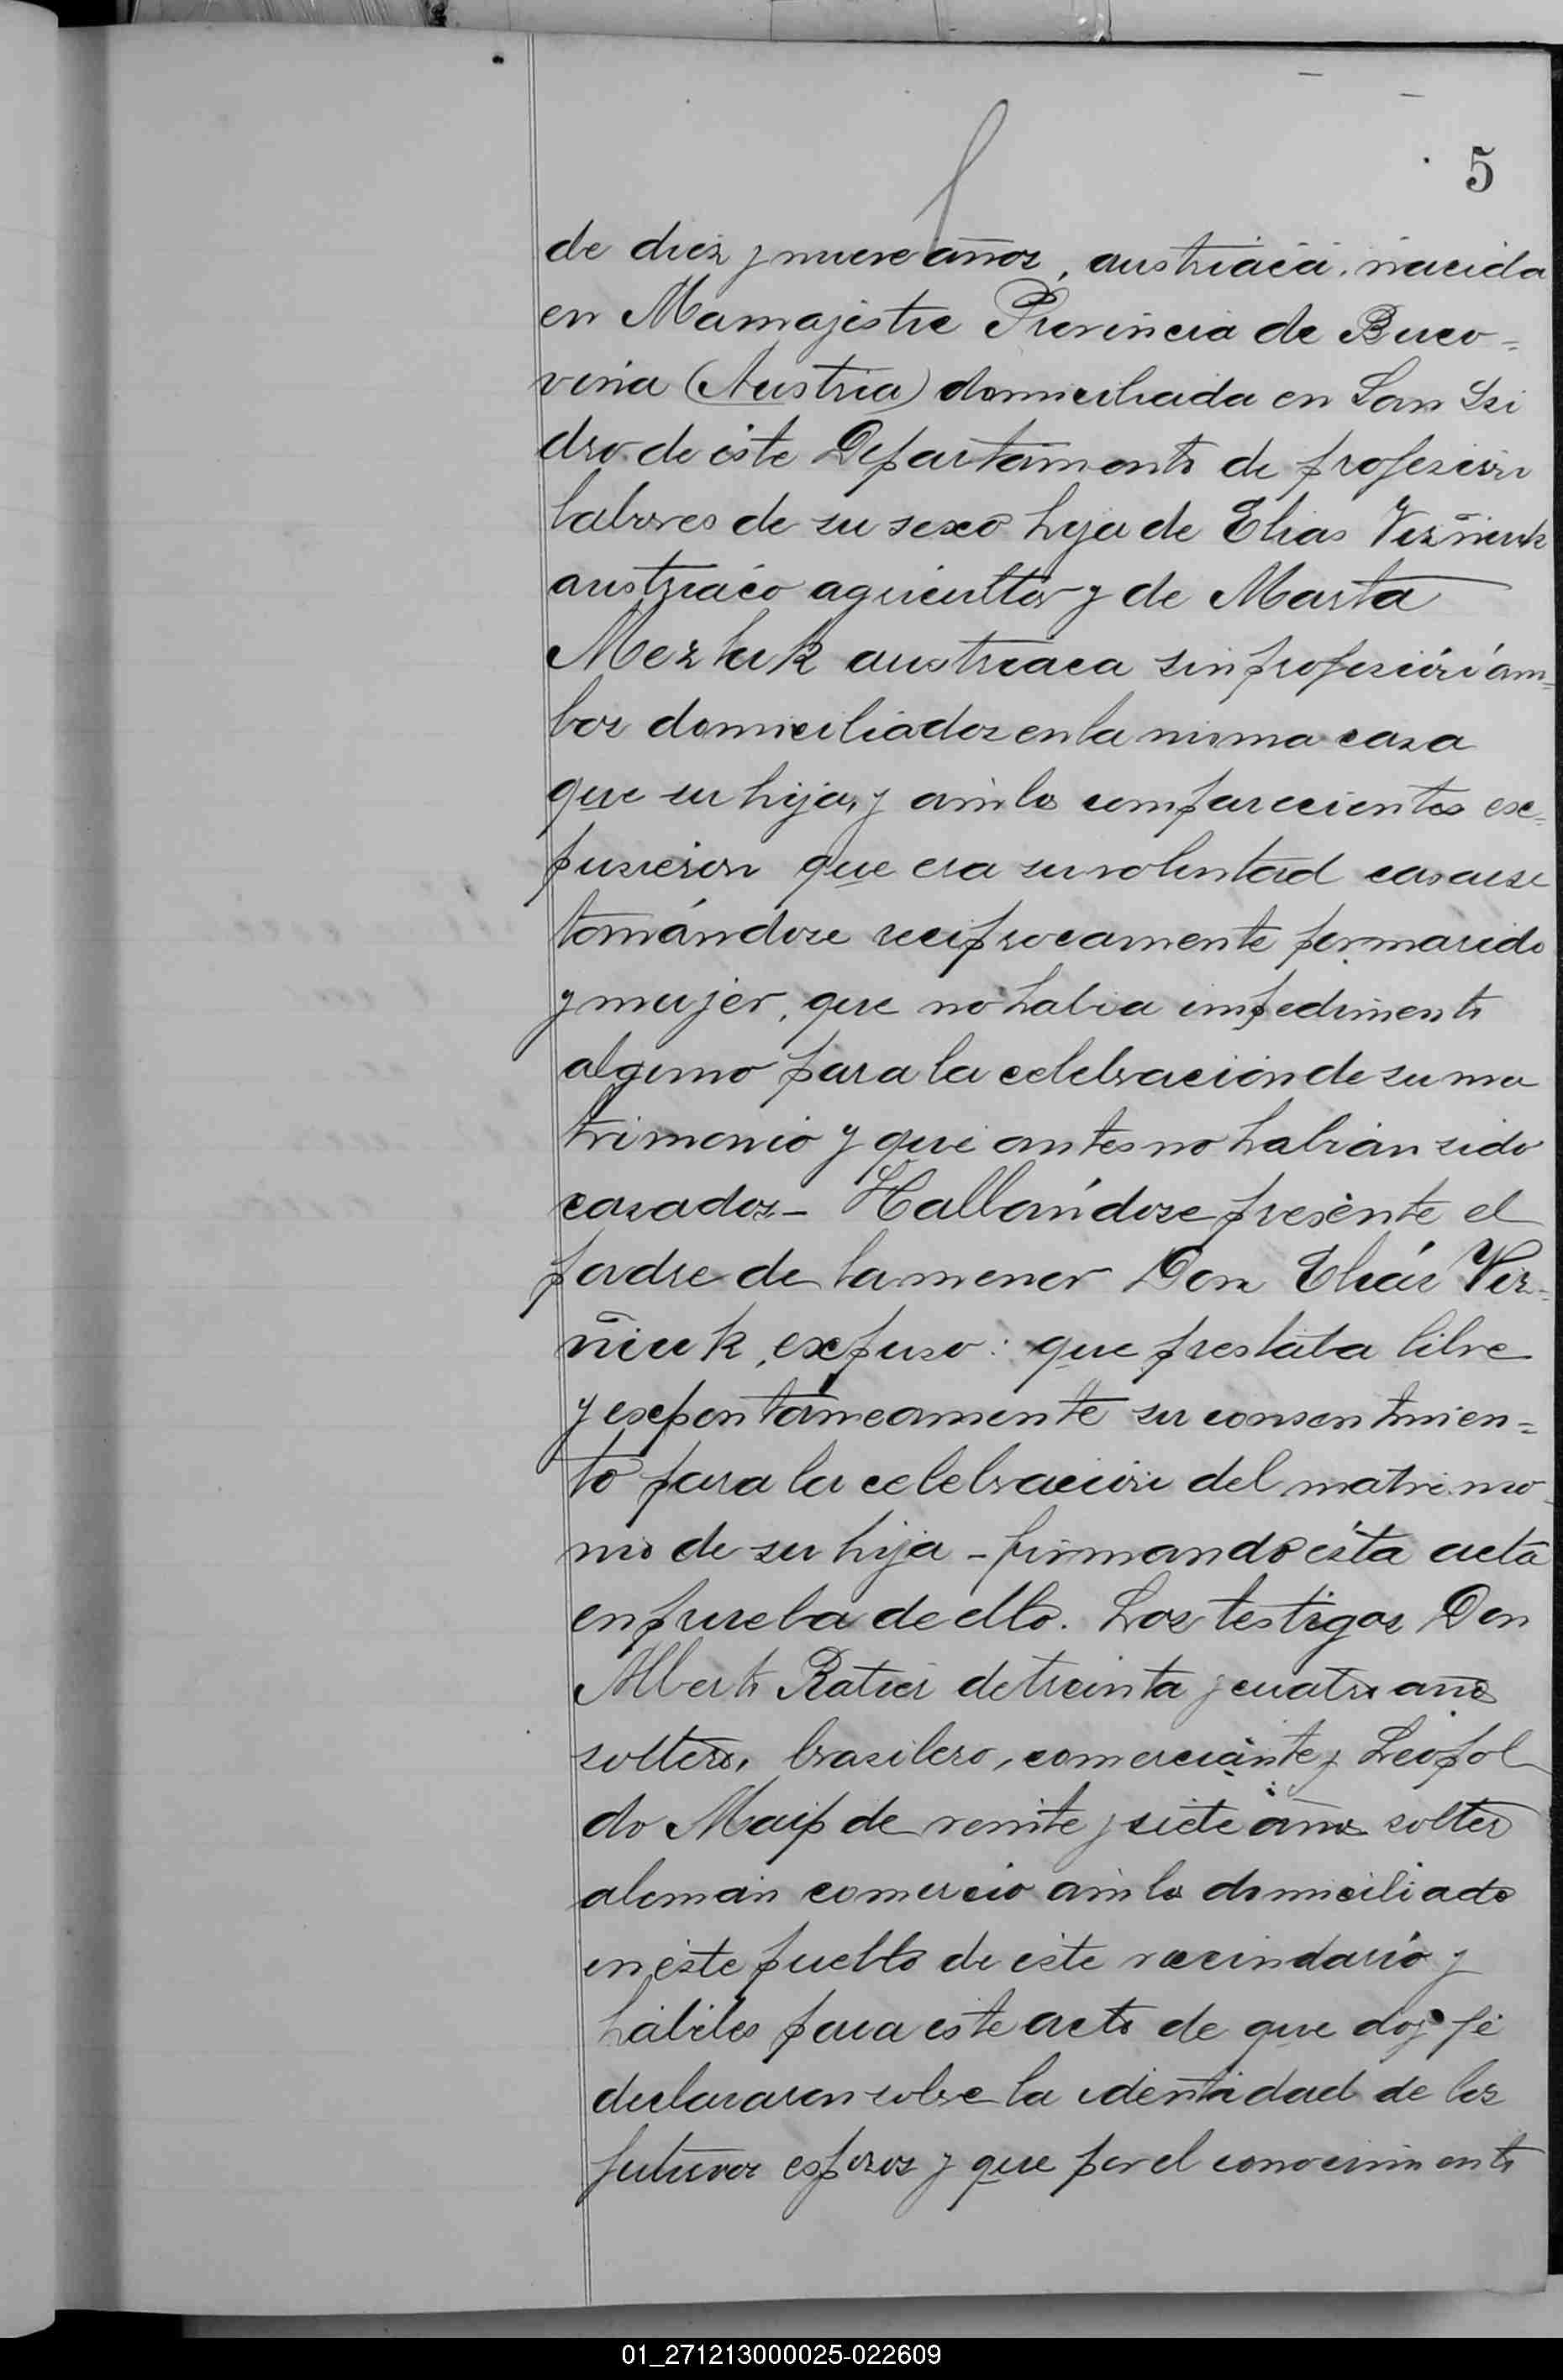 5
de diez y nueve años, austriaca, nacida
en Mamajestie Provincia de Buco=
vina (Austria) domiciliada en San Isi
dro de éste Departamento de profesion
labores de su sexo hija de Elias Verñiuk
austriaco agricultor y de Marta
Mezhuk austriaca sin profesión am=
bos domiciliados en la misma casa
que su hija, y ambos comparecientes es=
pusieron que era su voluntad casarse
tomándose reciprocamente por marido
y mujer, que no habia impedimento
alguno para la celebracion de su ma
trimonio y que antes no habian sido
casados - Hallándose presente el
padre de la menor Don Elías Ver=
ñiuk, expuso: que prestaba libre
y espontáneamente su consentimien=
to para la celebracion del matrimo
nio de su hija - firmando ésta acta
en prueba de ello. Los testigos Don
Alberto Ratier de treinta y cuatro años
soltero, brasilero, comerciante y Leopol
do Maip de veinte y siete años soltero
aleman comercio ambos domiciliado
en éste pueblo de éste vecindario y
hábiles para este acto de que doy fé
declararon sobre la identidad de los
futuros esposos y que por el conocimiento
01_271213000025-022609